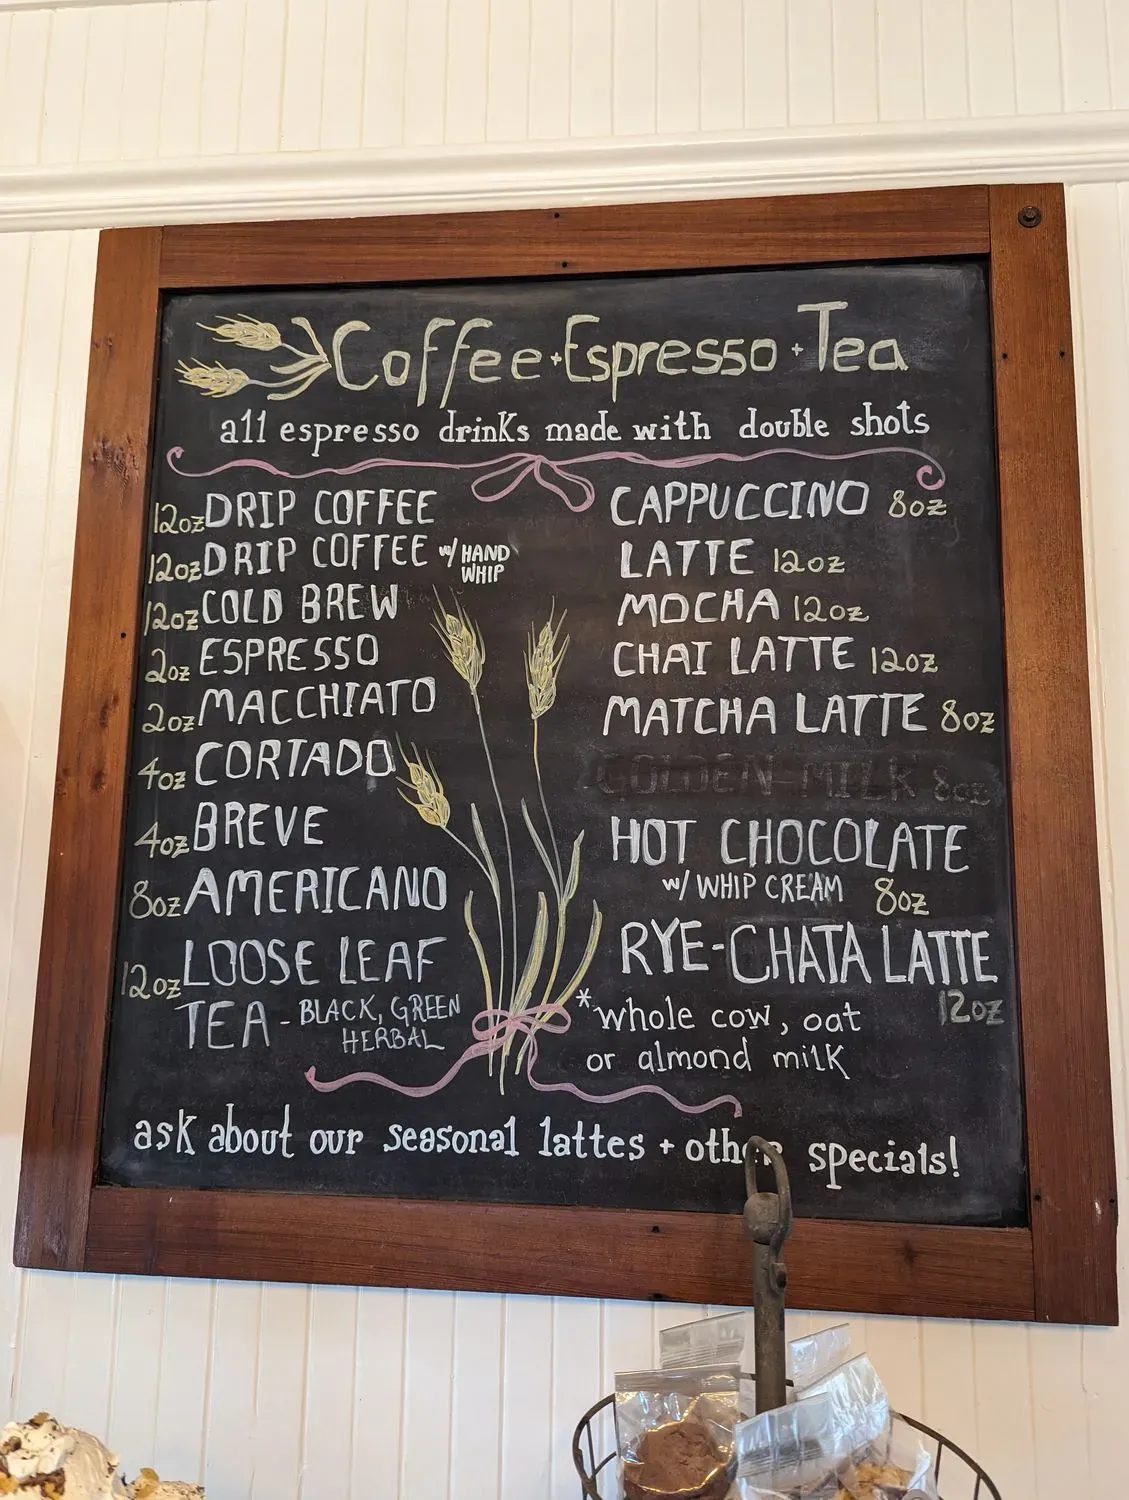 Coffee + Espresso + Tea
all espresso drinks made with double shots
12oz DRIP COFFEE
12oz DRIP COFFEE w/ HAND WHIP
12oz COLD BREW
2oz ESPRESSO
2oz MACCHIATO
4oz CORTADO
4oz BREVE
8oz AMERICANO
12oz LOOSE LEAF
TEA - BLACK, GREEN
HERBAL
CAPPUCCINO 8oz
LATTE 12oz
MOCHA 12oz
CHAI LATTE 12oz
MATCHA LATTE 8oz
GOLDEN MILK 8oz
HOT CHOCOLATE
w/ WHIP CREAM 8oz
RYE-CHATA LATTE
12oz
*whole cow, oat
or almond milk
ask about our seasonal lattes + other specials!